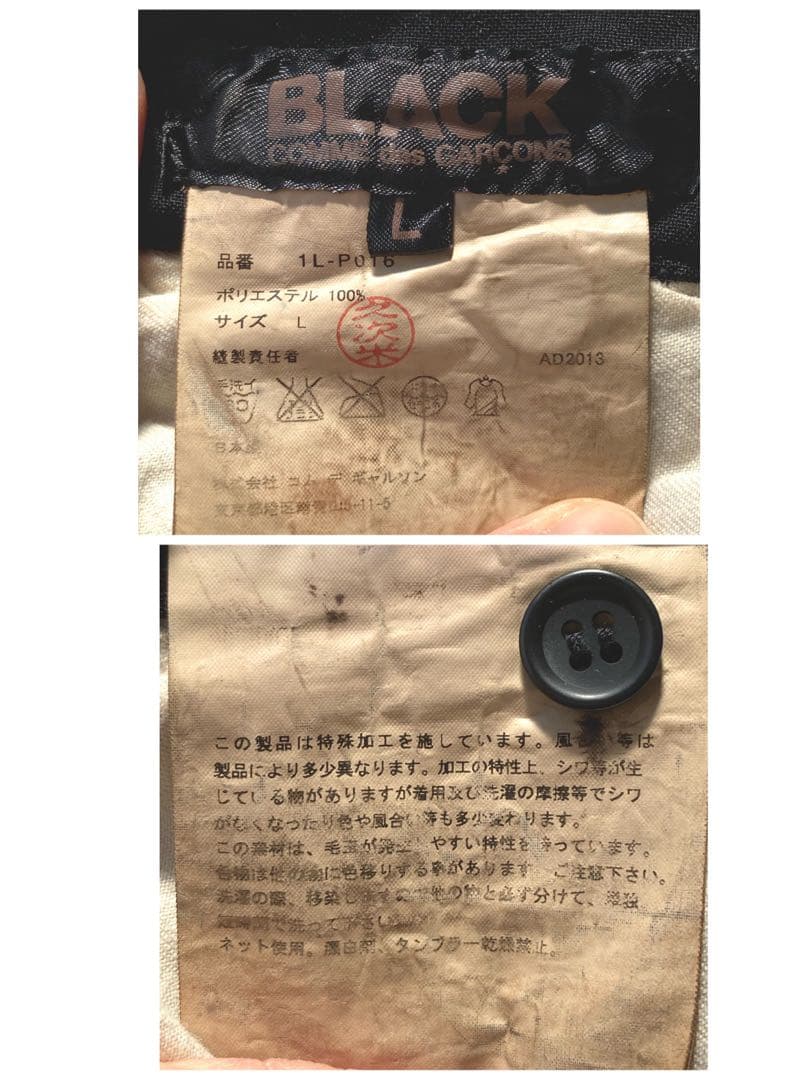 BLACK
COMME des GARÇONS
L
品番 1L-P016
ポリエステル 100%
サイズ L
久次米
縫製責任者 AD2013
手洗イ
日本製
株式会社 コム デ ギャルソン
東京都港区南青山5-11-5
この製品は特殊加工を施しています。風合い等は
製品により多少異なります。加工の特性上、シワ等が生
じている物がありますが着用及び洗濯の摩擦等でシワ
がなくなったり色や風合い等も多少変わります。
この素材は、毛玉が発生しやすい特性を持っています。
色物は他の物に色移りする事があります ご注意下さい。
洗濯の際、移染しますので他の物と必ず分けて、単独
短時間で洗って下さい
ネット使用。漂白剤、タンブラー乾燥禁止。